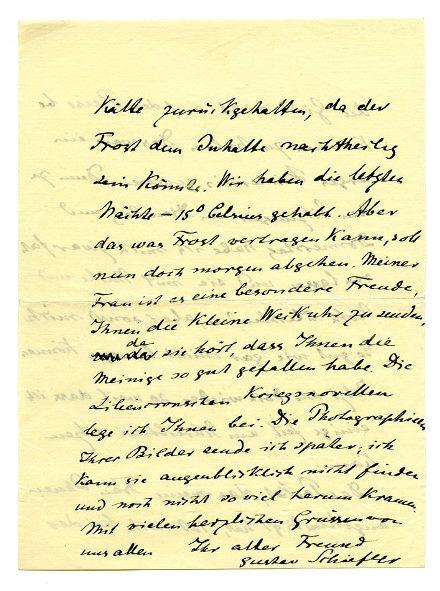 Kälte zurückgehalten, da der
Frost dem Inhalte nachtheilig
sein könnte. Wir haben die letzten
Nächte – 15° Celsius gehabt. Aber
das was Frost vertragen kann, soll
nun doch morgen abgehen. Meiner
Frau ist es eine besondere Freude,
Ihnen die kleine Uhr zu senden,
da sie hört, dass Ihnen die
Meinige so gut gefallen habe. Die
Liliencronschen Kriegsnovellen
lege ich Ihnen bei. Die Photographien
Ihrer Bilder sende ich später, ich
kann sie augenblicklich nicht finden
und noch nicht so viel herum kramen.
Mit vielen herzlichen Grüssen von
uns allen Ihr alter Freund
Gustav Schiefler